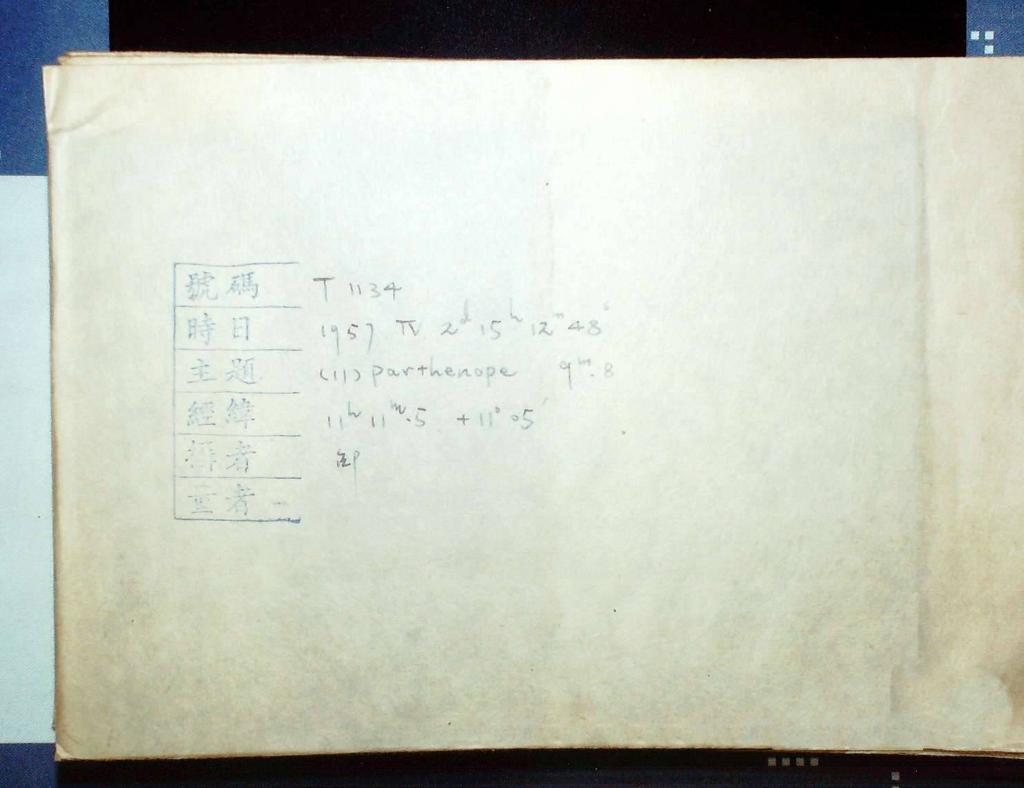 號碼 T 1134
時日 1957 IV 2ᵈ 15ʰ 12ᵐ 48ˢ
主題 (11) parthenope 9ᵐ.8
經緯 11ʰ 11ᵐ.5 +11° 05′
者
量者